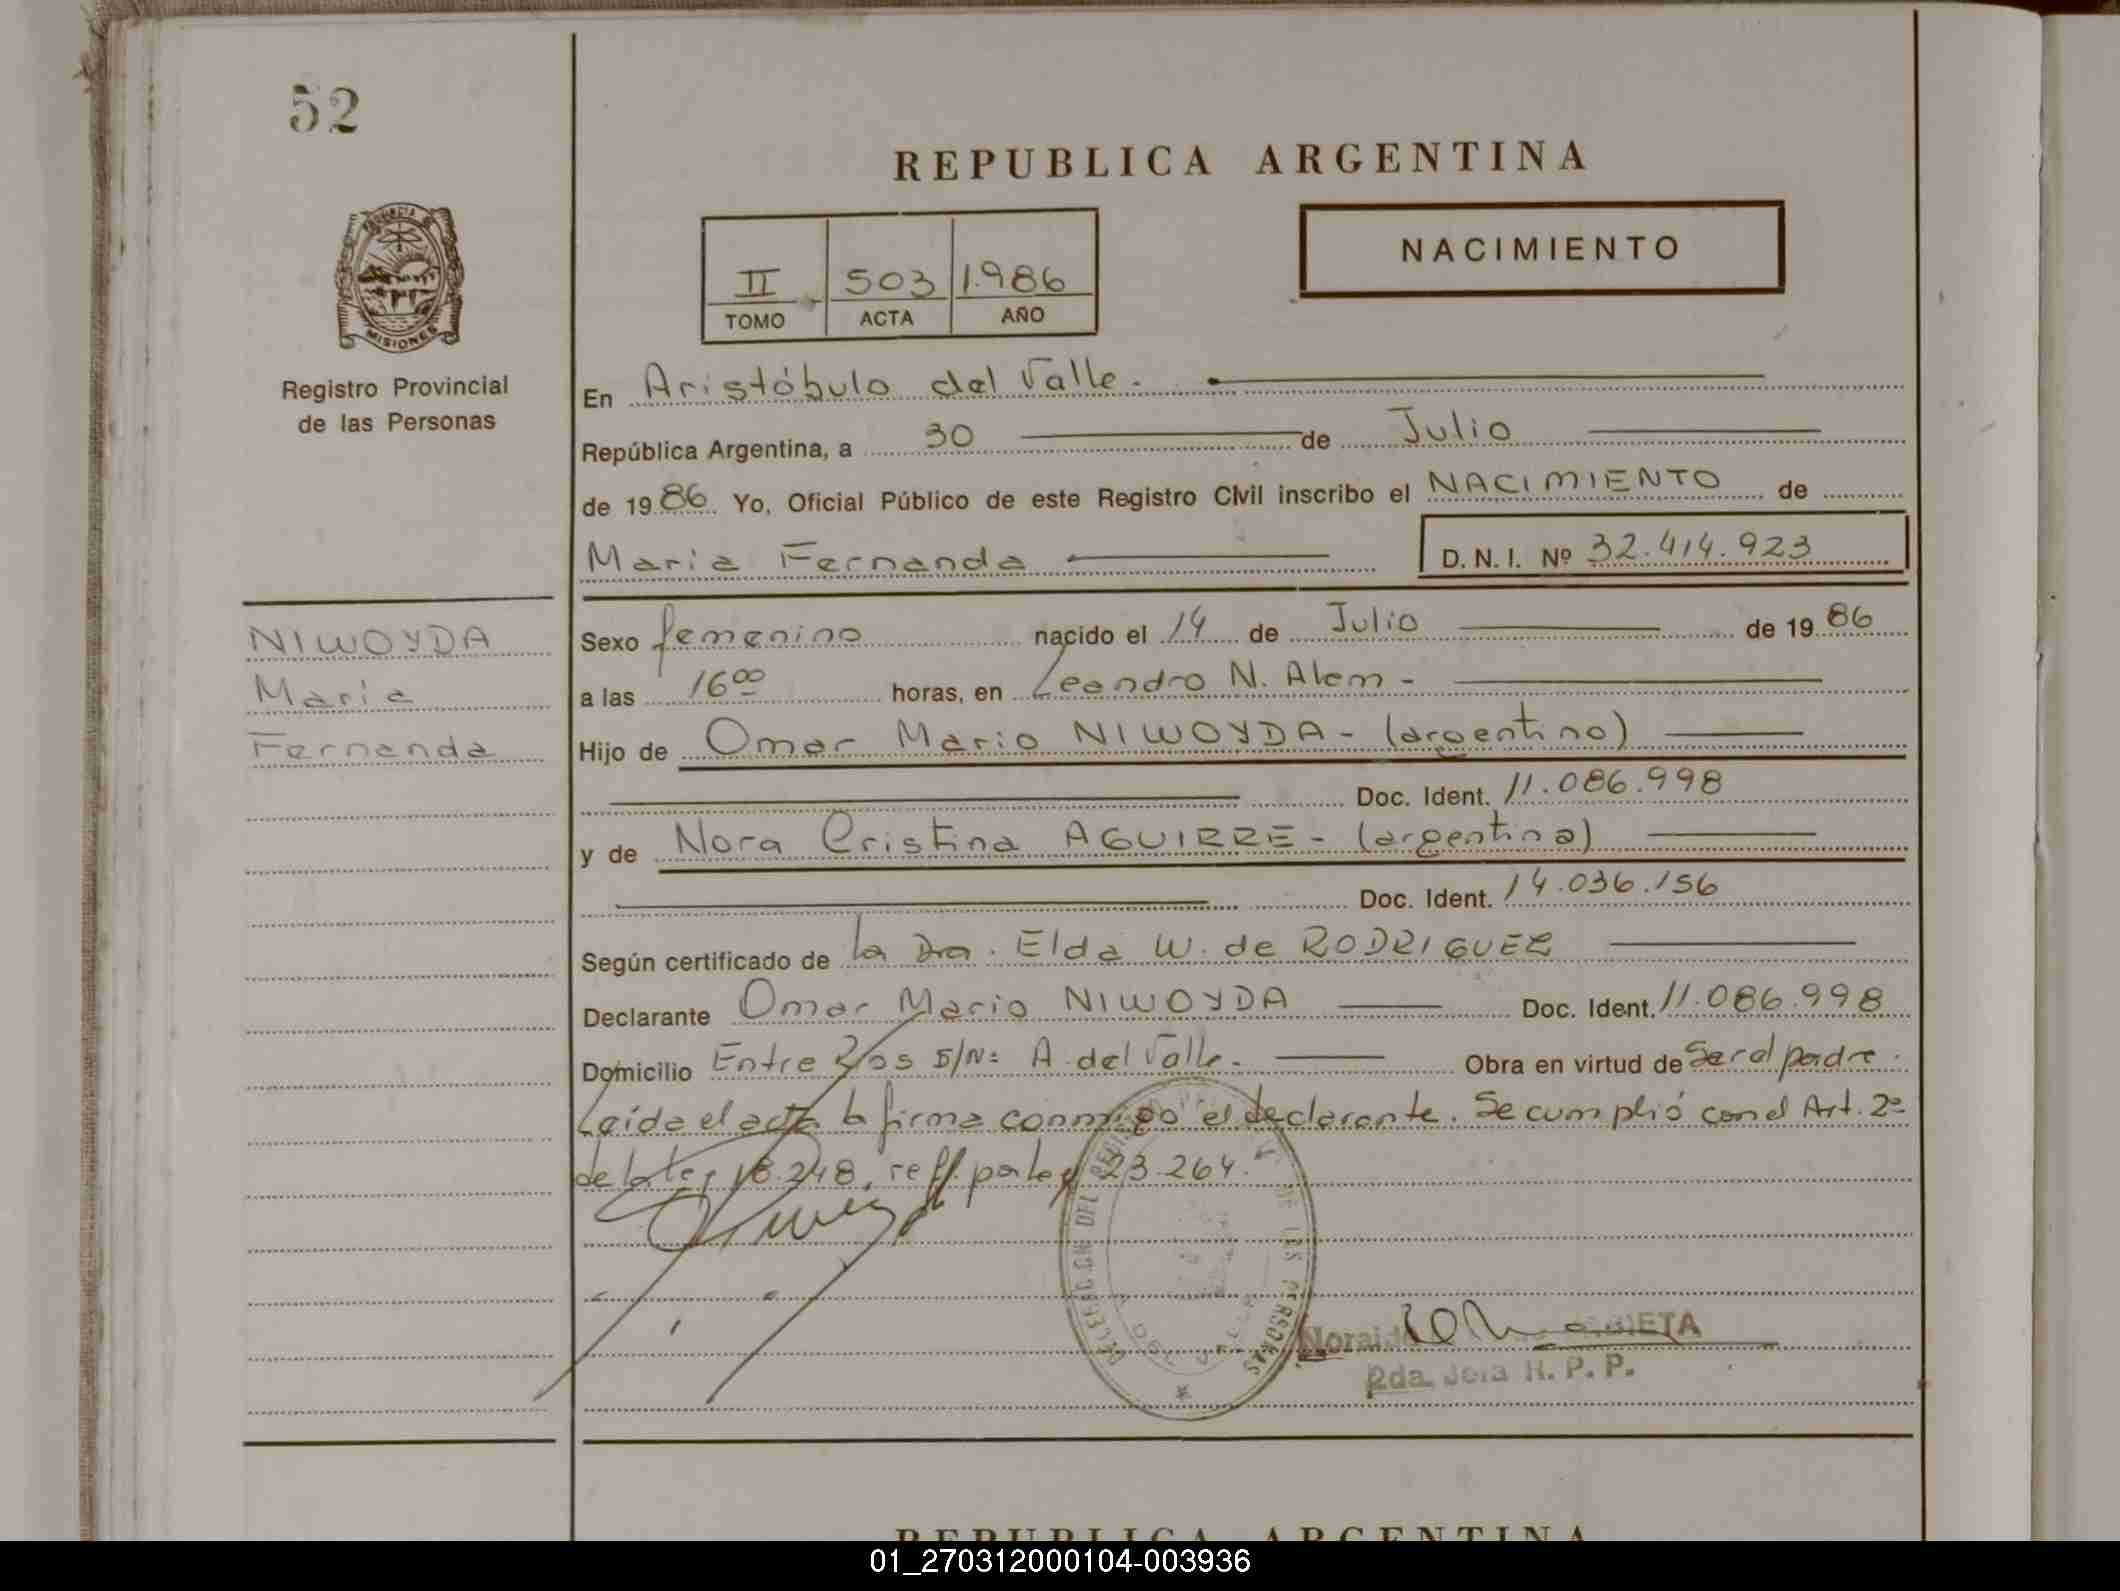 52
REPUBLICA ARGENTINA
NACIMIENTO
II 503 1.986
TOMO ACTA AÑO
PROVINCIA DE
MISIONES
Registro Provincial
de las Personas
En Aristóbulo del Valle.
República Argentina, a 30 de Julio
de 1986 Yo, Oficial Público de este Registro Civil inscribo el NACIMIENTO de
Maria Fernanda D. N. I. Nº 32.414.923
NIWOYDA
Maria
Fernanda
Sexo femenino nacido el 14 de Julio de 1986
a las 16⁰⁰ horas, en Leandro N. Alem -
Hijo de Omar Mario NIWOYDA - (argentino)
Doc. Ident. 11.086.998
y de Nora Cristina AGUIRRE - (argentina)
Doc. Ident. 14.036.156
Según certificado de la Dra. Elda W. de RODRIGUEZ
Declarante Omar Mario NIWOYDA Doc. Ident. 11.086.998
Domicilio Entre Rios S/Nº A. del Valle. Obra en virtud de Ser el padre.
Leída el acta la firma conmigo el declarante. Se cumplió con el Art. 2º
de la ley 18.248, reff. por ley 23.264.
DELEGACION DEL REGISTRO DE LAS PERSONAS
2da. Jefa R. P. P.
REPUBLICA ARGENTINA
01_270312000104-003936